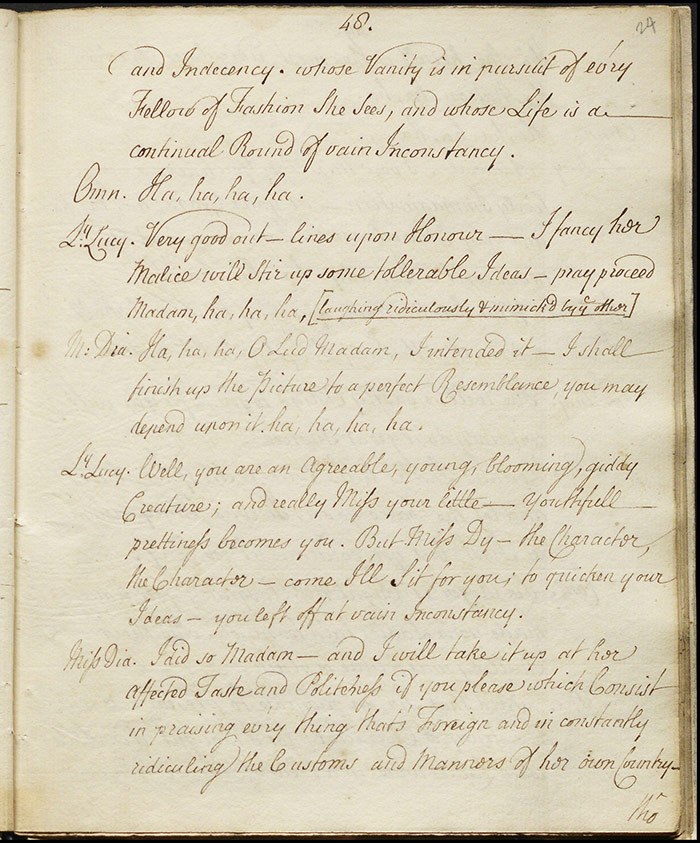 48.
24
and Indecency. whose Vanity is in pursuit of ev'ry
Fellow of Fashion She Sees, and whose Life is a
continual Round of vain Inconstancy.
Omn. Ha, ha, ha, ha.
Ly. Lucy. Very good out— lines upon Honour — I fancy her
Malice will Stir up some tollerable Ideas — pray proceed
Madam, ha, ha, ha, [laughing ridiculously & mimick'd by ye other]
M: Dia. Ha, ha, ha, O Lud Madam, I intended it — I shall
finish up the Picture to a perfect Resemblance, you may
depend upon it. ha, ha, ha, ha.
Ly. Lucy. Well, you are an Agreeable, young, blooming, giddy
Creature; and really Miſs your little — Youthfull —
prettineſs becomes you. But Miſs Dy — the Character,
the Character — come I'll Sit for you; to quicken your
Ideas — you left off at vain Inconstancy.
Miſs Dia. I did so Madam — and I will take it up at her
Affected Taste and Politeneſs if you please which Consist
in praising ev'ry thing that's Foreign and in constantly
ridiculing the Customs and Manners of her own Country—
Tho'